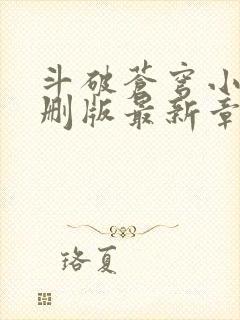 斗破苍穹小
删版最新章
珞夏